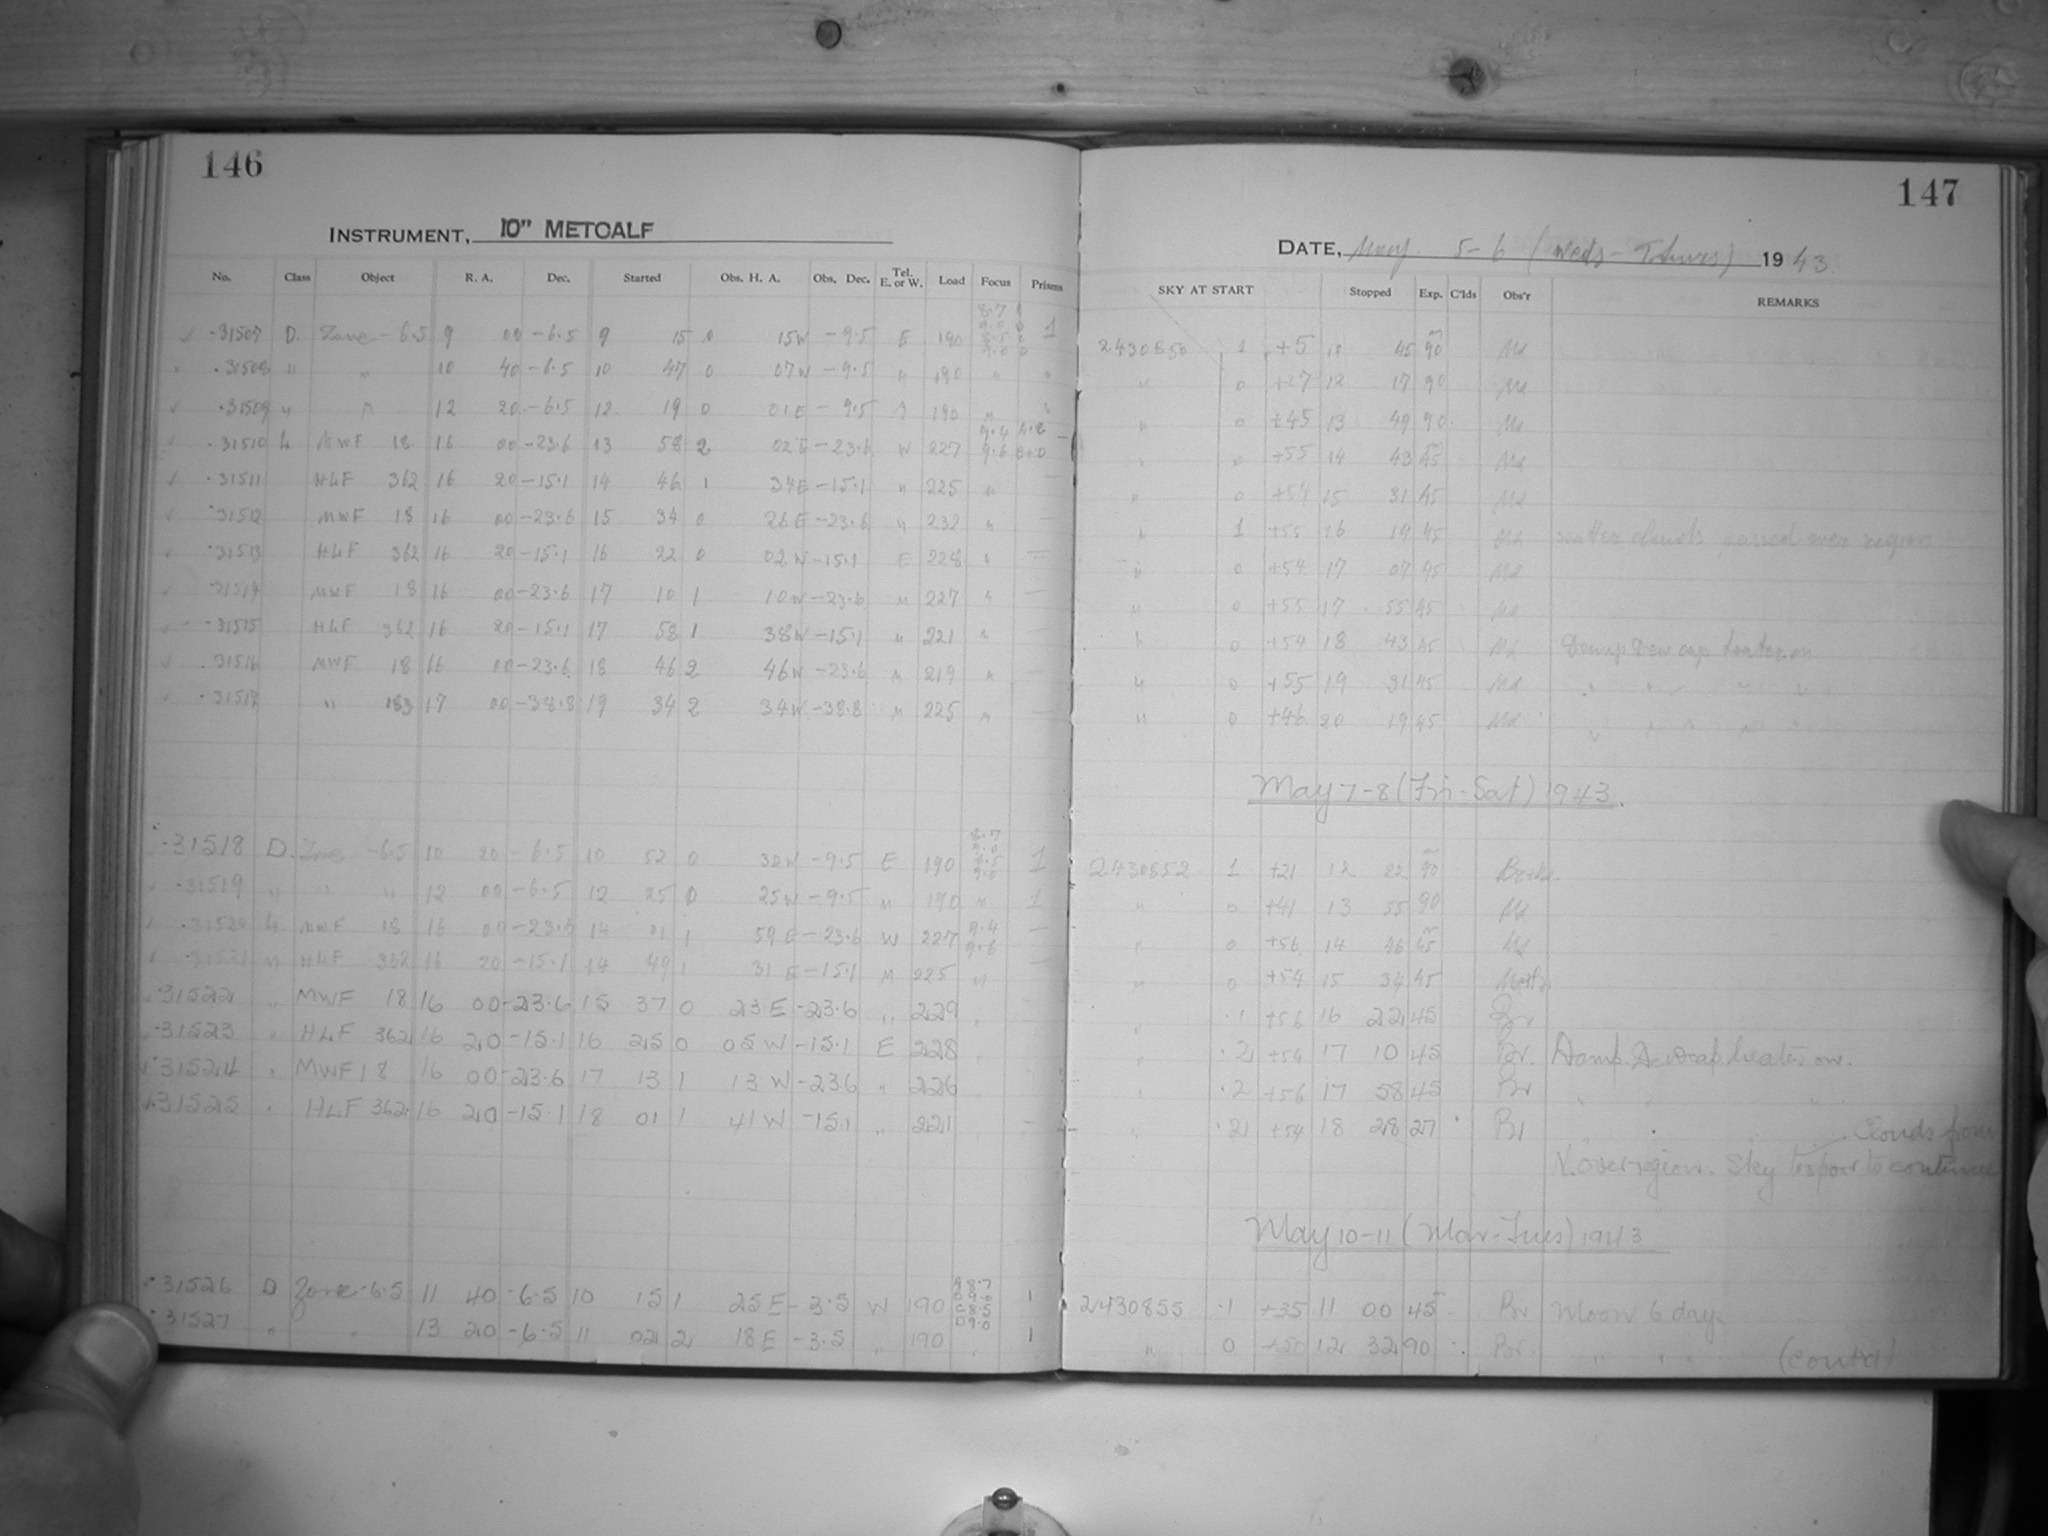 146
INSTRUMENT, 10" METCALF
No. Class Object R. A. Dec. Started Obs. H. A. Obs. Dec. Tel. E. or W. Load Focus Prisms
.31507 D. Zone -6.5 9 00 -6.5 9 15 0 15W -9.5 E 190 1
.31508 " " 10 40 -6.5 10 47 0 07W -9.5 " 190 " "
.31509 " " 12 20 -6.5 12 19 0 01E -9.5 " 190 " "
.31510 L MWF 18 16 00 -23.6 13 58 2 02E -23.6 W 227 9.4 9.6 —
.31511 HLF 362 16 20 -15.1 14 46 1 34E -15.1 " 225 " —
.31512 MWF 18 16 00 -23.6 15 34 0 26E -23.6 " 232 " —
.31513 HLF 362 16 20 -15.1 16 22 0 02W -15.1 E 228 " —
.31514 MWF 18 16 00 -23.6 17 10 1 10W -23.6 " 227 " —
.31515 HLF 362 16 20 -15.1 17 58 1 38W -15.1 " 221 " —
.31516 MWF 18 16 00 -23.6 18 46 2 46W -23.6 " 219 " —
.31517 " 183 17 00 -38.8 19 34 2 34W -38.8 " 225 " —
.31518 D. Zone -6.5 10 20 -6.5 10 52 0 32W -9.5 E 190 8.7 9.0 8.5 9.0 1
.31519 " " " 12 00 -6.5 12 25 0 25W -9.5 " 190 " 1
.31520 L MWF 18 16 00 -23.6 14 01 1 59E -23.6 W 227 9.4 9.6 —
.31521 " HLF 362 16 20 -15.1 14 49 1 31E -15.1 " 225 "
.31522 " MWF 18 16 00 -23.6 15 37 0 23E -23.6 " 229 "
.31523 " HLF 362 16 20 -15.1 16 25 0 05W -15.1 E 228 "
.31524 " MWF 18 16 00 -23.6 17 13 1 13W -23.6 " 226 "
.31525 " HLF 362 16 20 -15.1 18 01 1 41W -15.1 " 221 " —
.31526 D Zone -6.5 11 40 -6.5 10 15 1 25E -3.5 W 190 1
.31527 " " 13 20 -6.5 11 02 2 18E -3.5 " 190 " 1
147
DATE, May 5-6 (Weds-Thurs) 1943.
SKY AT START Stopped Exp. C'lds Obs'r REMARKS
2430850 1 +5 10 45 90 Md
" 0 +27 12 17 90 Md
" 0 +45 13 49 90 Md
" 0 +55 14 43 45 Md
" 0 +54 15 31 45 Md
" 1 +55 16 19 45 Md clouds passed over region
" 0 +54 17 07 45 Md
" 0 +55 17 55 45 Md
" 0 +54 18 43 45 Md Damp Dew cap heater on
" 0 +55 19 31 45 Md " " " " "
" 0 +46 20 19 45 Md " " " " "
May 7-8 (Fri-Sat) 1943.
2430852 1 +21 12 22 90
" 0 +41 13 55 90 Md
" 0 +56 14 46 45 Md
" 0 +54 15 34 45
" .1 +56 16 22 45 Br
" .2 +54 17 10 45 Br. Damp. Dewcap heater on.
" .2 +56 17 58 45 Br " " "
" .2 +54 18 28 27 Br " " " Clouds from
N. over region. Sky too poor to continue
May 10-11 (Mon-Tues) 1943
2430855 .1 +35 11 00 45 Br Moon 6 days
" 0 +50 12 32 90 Br. " " " (contd)